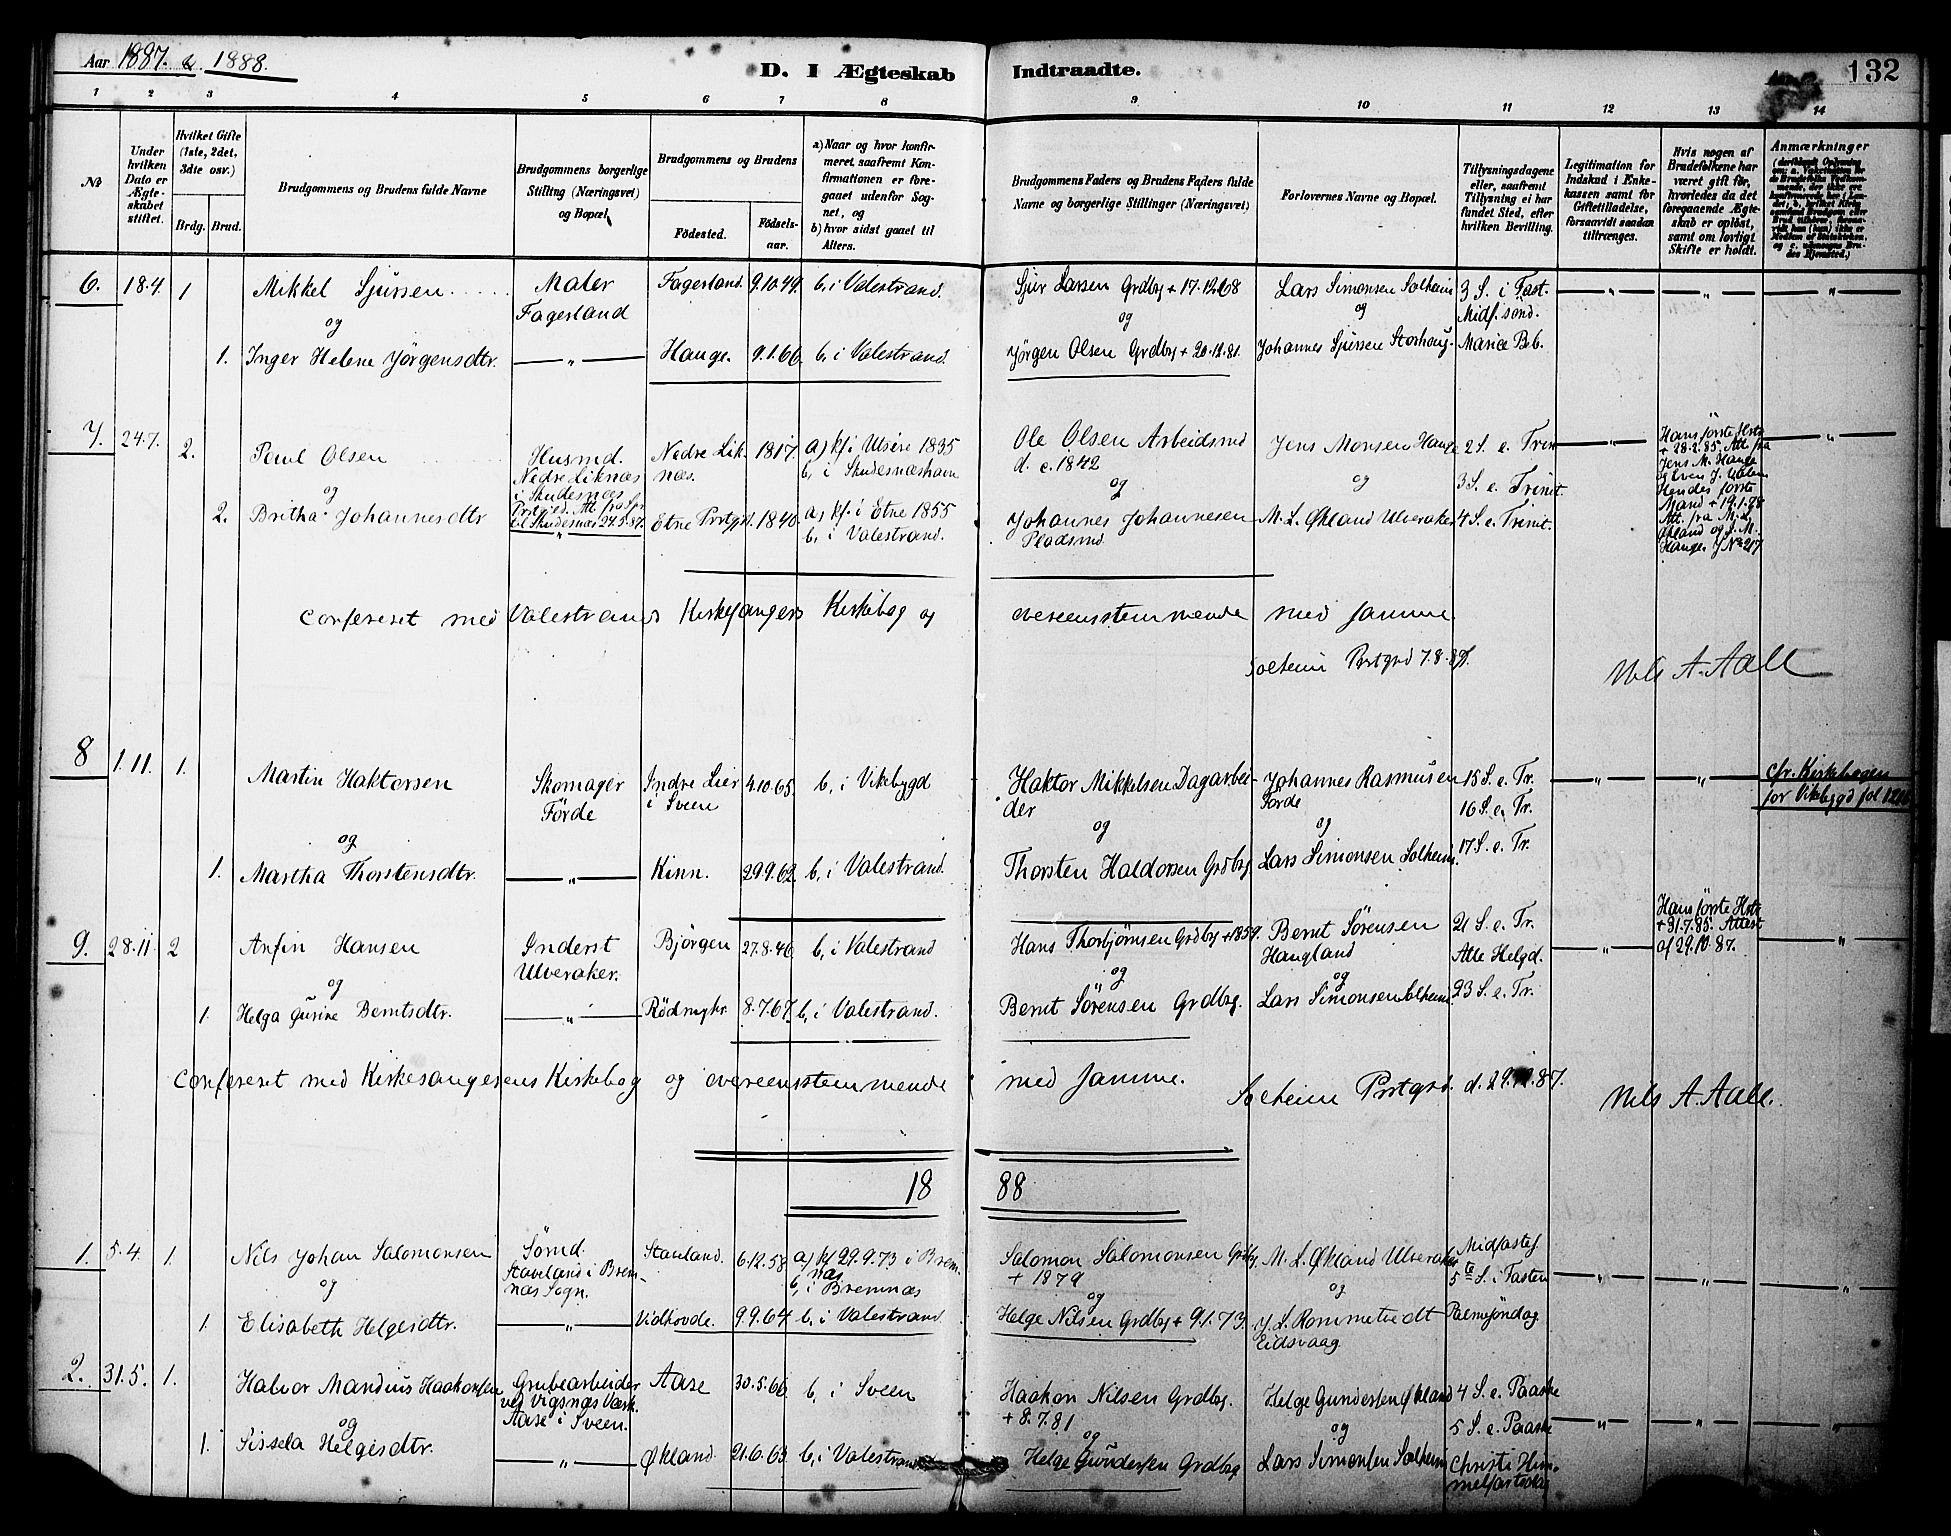 Aar 1887. & 1888.
D. I Ægteskab Indtraadte.
132
1 2 3 4 5 6 7 8 9 10 11 12 13 14
№
Under hvilken Dato er Ægteskabet stiftet.
Hvilket Gifte (1ste, 2det, 3die osv.)
Brdg. Brud.
Brudgommens og Brudens fulde Navne
Brudgommens borgerlige Stilling (Næringsvei) og Bopæl.
Brudgommens og Brudens
Fødested. Fødselsaar.
a) Naar og hvor konfirmeret, saafremt Konfirmationen er foregaaet udenfor Sognet, og
b) hvor sidst gaaet til Alters.
Brudgommens Faders og Brudens Faders fulde Navne og borgerlige Stillinger (Næringsvei)
Forlovernes Navne og Bopæl.
Tillysningsdagene eller, saafremt Tillysning ei har fundet Sted, efter hvilken Bevilling.
Legitimation for Indskud i Enkekassen samt for Giftetilladelse, forsaavidt saadan tiltrænges.
Hvis nogen af Brudefolkene har været gift før, hvorledes da det foregaaende Ægteskab er opløst, samt om lovligt Skifte er holdt.
Anmærkninger
6. 18.4 1 Mikkel Sjursen Maler Fagerland Fagerland. 9.10.49. b, i Valestrand. Sjur Larsen Grdbg + 17.12.68 Lars Simonsen Solheim 3 S. i Fast. — „ — — „ — — „ —
og og og Midf. sönd.
1. Inger Helene Jörgensdtr. — „ — Hauge. 9.1.66. b, i Valestrand. Jörgen Olsen Grdbg + 20.12.81. Johannes Sjursen Storhoug Mariæ Beb.
7. 24.7. 2. Poul Olsen Husmd. Nedre Liknæs i Skudesnæs Nedre Liknæs. 1817. a) kf. i Utsire 1835 b, i Skudesnæshavn Ole Olsen Arbeidsmd d. c. 1842 Jens Monsen Hauge 2 S. e. Trin — „ — Hans förste Hstr + 28.2.85. Att. fra Jens M. Hauge — „ —
og Prstgjed. Att. fra Spr. til Skudesnæs 24.5.87. og og 3 S. e. Trinit.
2. Britha Johannesdtr — „ — Etne Prstgjd. 1840 a) kf. i Etne 1855 b, i Valestrand. Johannes Johannesen Pladsmd. M. L. Økland Ulveraker 4 S. e. Trinit. Hendes förste Mand + 19.1.78 Att. fra M. L. Økland og J. M. Hauge. J № 217
Confereret med Valestrands Kirkesangers Kirkebog og overeensstemmende med samme
Solheim Prstgrd 7.8.87. Nils A. Aall
8 1.11. 1. Martin Haktorsen Skomager Förde Indre Lier i Sveen 4.10.65. b, i Vikebygd Haktor Mikkelsen Dagarbeider Johannes Rasmusen Förde 15 S. e. Tr. 16 S. e. Tr. — „ — — „ — cfr. Kirkebogen for Vikebygd fol
og og og
1. Martha Thorstensdtr. — „ — Kinn. 29.9.62. b, i Valestrand. Thorsten Haldorsen Grdbg. Lars Simonsen Solheim. 17 S. e. Tr.
9. 28.11 2 Anfin Hansen Inderst Ulveraker. Bjørgen 27.8.46. b, i Valestrand Hans Thorbjørnsen Grdbg + 1859. Bernt Sörensen Haugland 21 S. e. Tr. Alle Helgd. — „ — Hans förste Hstr + 31.7.85. Attest af 29.10.87. — „ —
og og og
1. Helga Gurine Berntsdtr. — „ — 8.7.67. b, i Valestrand. Bernt Sörensen Grdbg. Lars Simonsen Solheim 23 S. e. Tr.
Confereret med Kirkesangerens Kirkebog og overeensstemmende med samme.
Solheim Prstgrd. d. 29. .87. Nils A. Aall.
18 88
1. 5.4. 1. Nils Johan Salomonsen Sømd. Stavland i Bremnæs Sogn. Stavland. 6.12.58 a) kf 29.9.73 i Bremnæs b, i Bremnæs Salomon Salomonsen Grdbg. + 1879 M. L. Økland Ulveraker Midfastes. 5te S. i Fasten — „ — — „ — — „ —
og og og
1. Elisabeth Helgesdtr. — „ — Vidhovde. 9.9.64. b, i Valestrand. Helge Nilsen Grdbg + 9.1.73. J. L. Rommetvedt Eidsvaag Palmesöndag.
2. 31.5. 1. Halvor Mandius Haakonsen Grubearbeider ved Vigsnæs Værk. Aase i Sveen. Aase 30.5.66 b, i Sveen Haakon Nilsen Grdbg. + 8.7.81 Helge Gundersen Økland 4 S. e. Paaske 5 S. e. Paaske — „ — — „ — — „ —
og og og
1. Sissela Helgesdtr. — „ — Økland. 21.6.63 b, i Valestrand Helge Gundersen Grdbg Lars Simonsen Solheim Christi Himmelfartsdag